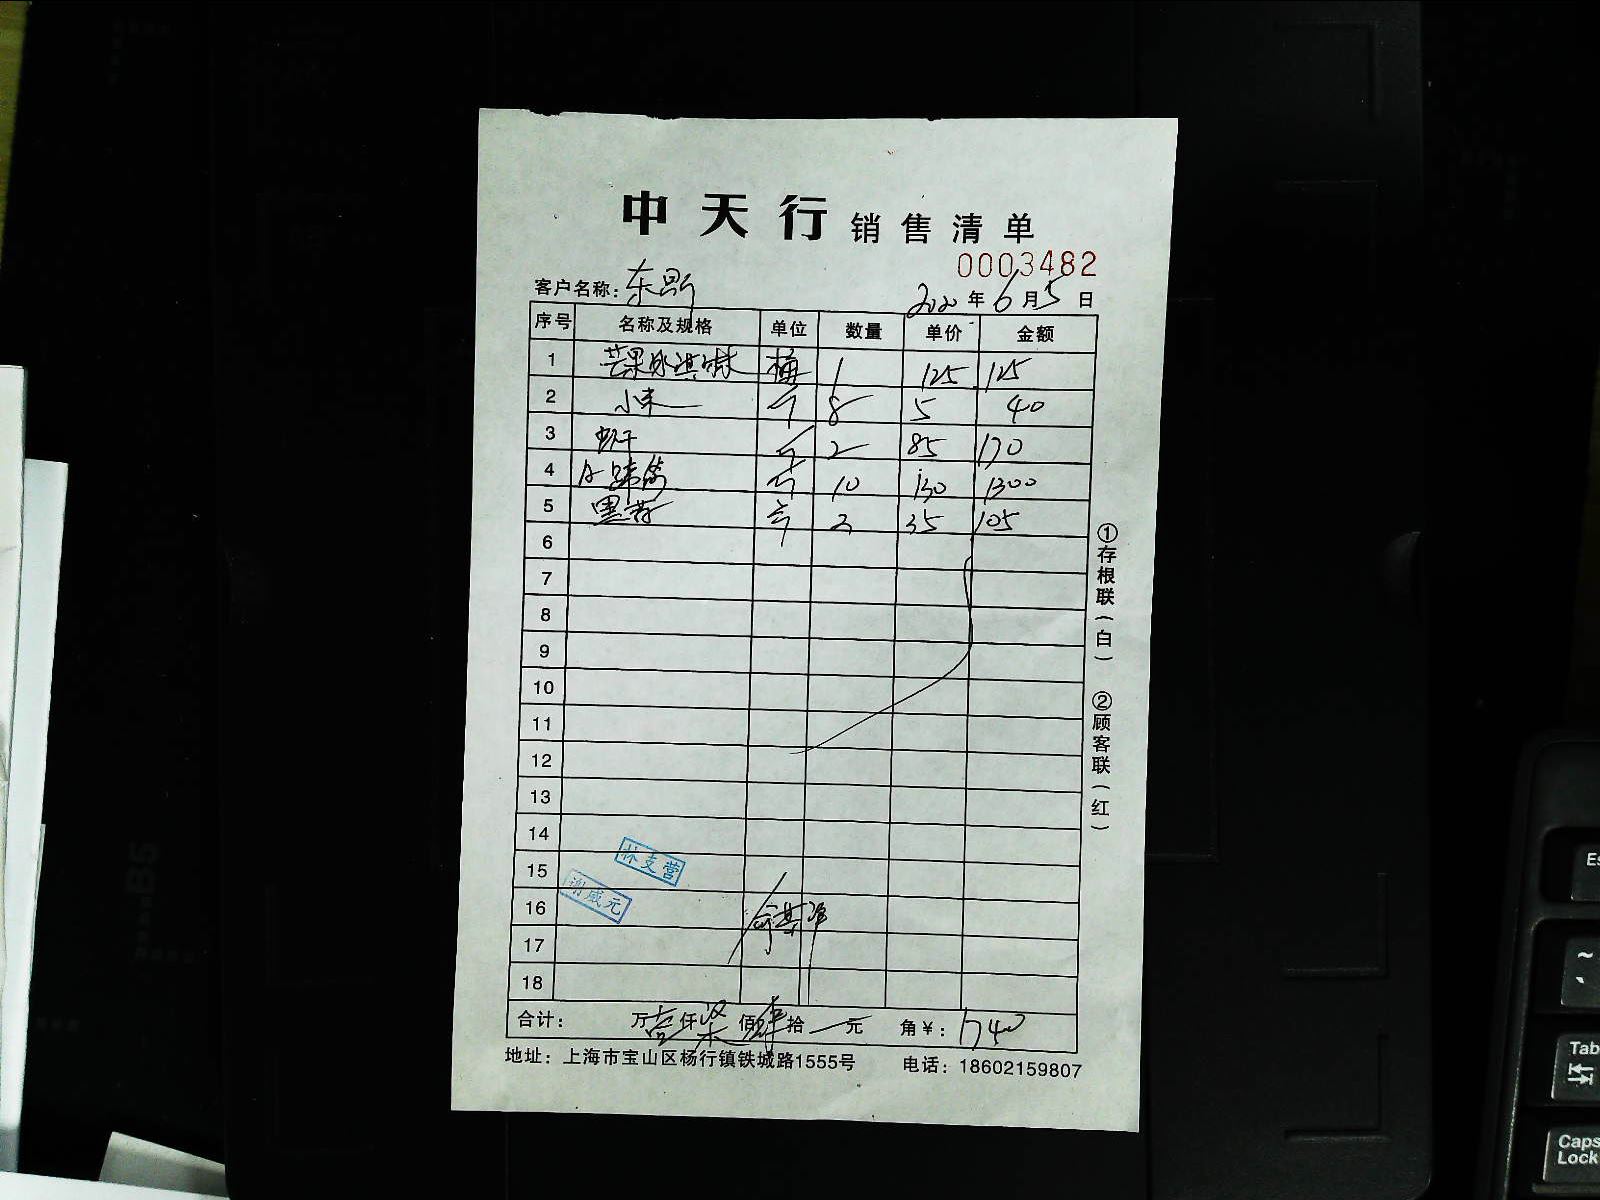 中天行 销售清单
0003482
客户名称：东
2020年6月5日
序号 名称及规格 单位 数量 单价 金额
1 芒果冰淇淋 桶 1 125 125
2 小米 斤 8 5 40
3 虾干 斤 2 85 170
4 斤 10 130 1300
5 斤 3 35 105
6
7
8
9
10
11
12
13
14
15
16
17
18
林支营
谢威元
合计： 万壹仟柒佰肆拾 元 角¥：1740
地址：上海市宝山区杨行镇铁城路1555号 电话：18602159807
①存根联（白） ②顾客联（红）
B5
Tab
Caps
Lock